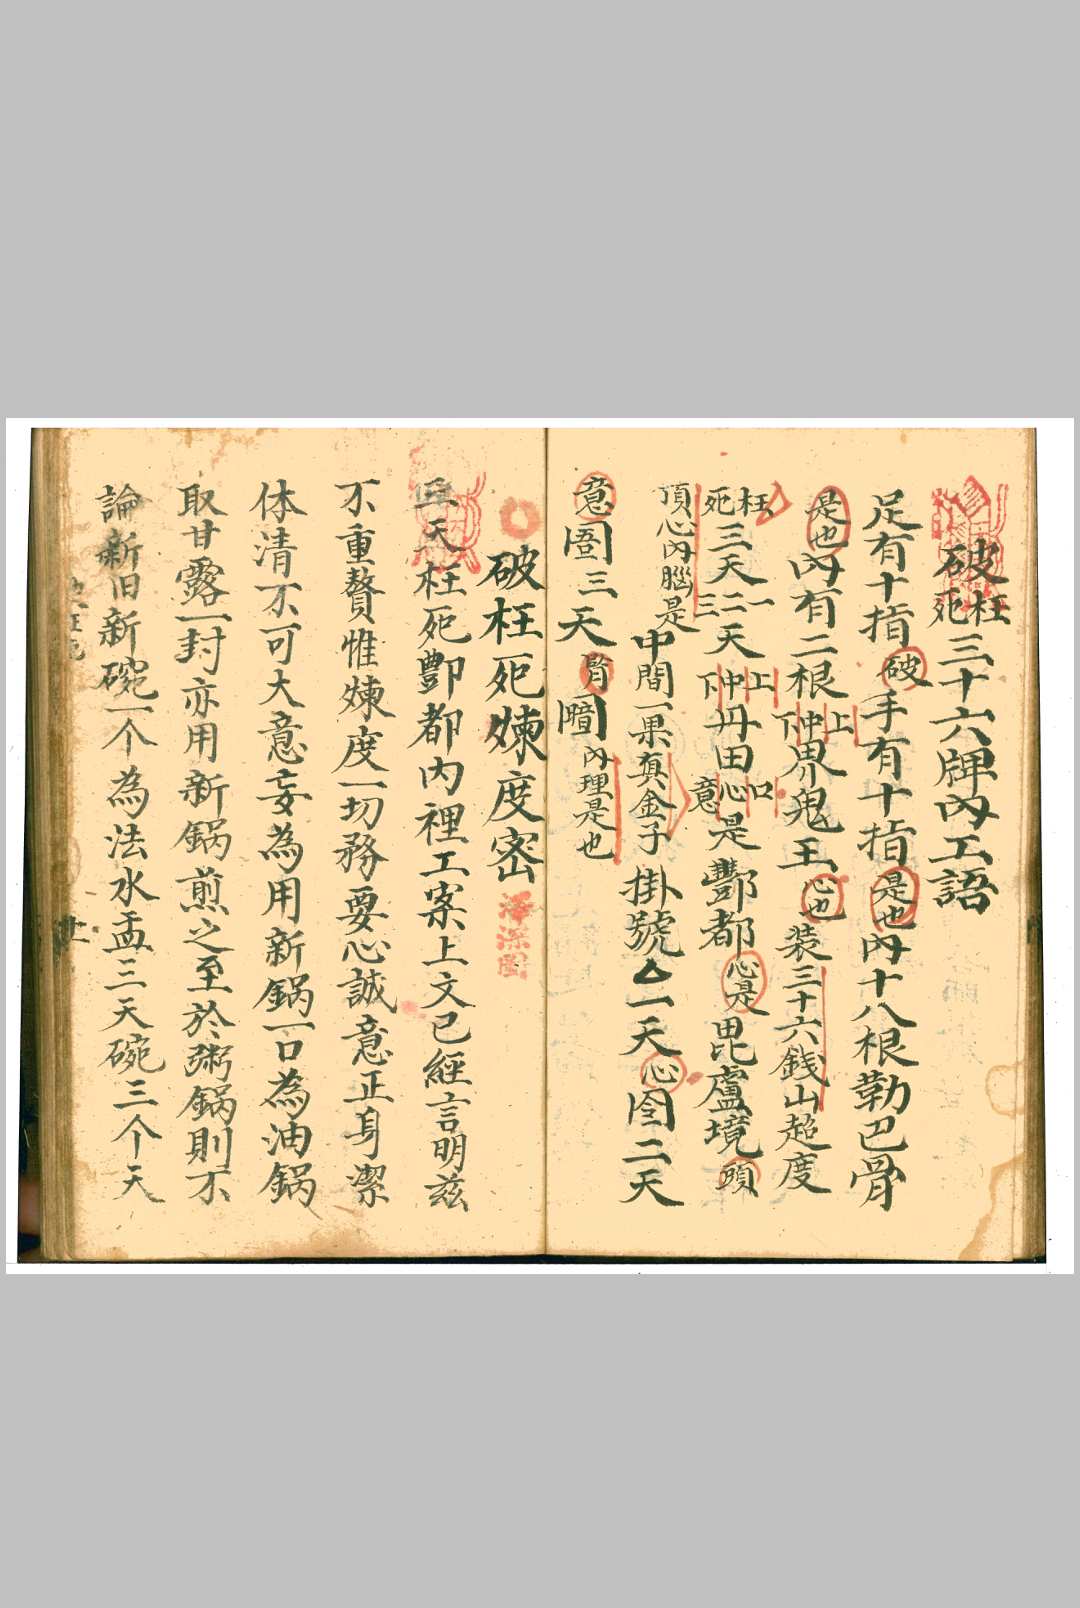 破枉死三十六牌內工語
足有十指破手有十指是也內十八根勒巴骨
是也內有二根上仲下界鬼王心也裝三十六錢山超度
枉死三天一二三天上仲下丹田口心意是酆都心是毘盧境頭
頂心內腦是中間一果真金子掛號厶一天心囹二天
意圄三天腎𨶹內理是也
破枉死煉度密
澤深圖
天枉死酆都內裡工案上文已經言明茲
不重贅惟煉度一切務要心誠意正身潔
体清不可大意妄為用新鍋一口為油鍋
取甘露一封亦用新鍋煎之至於粥鍋則不
論新旧新碗一个為法水盂三天碗三个天